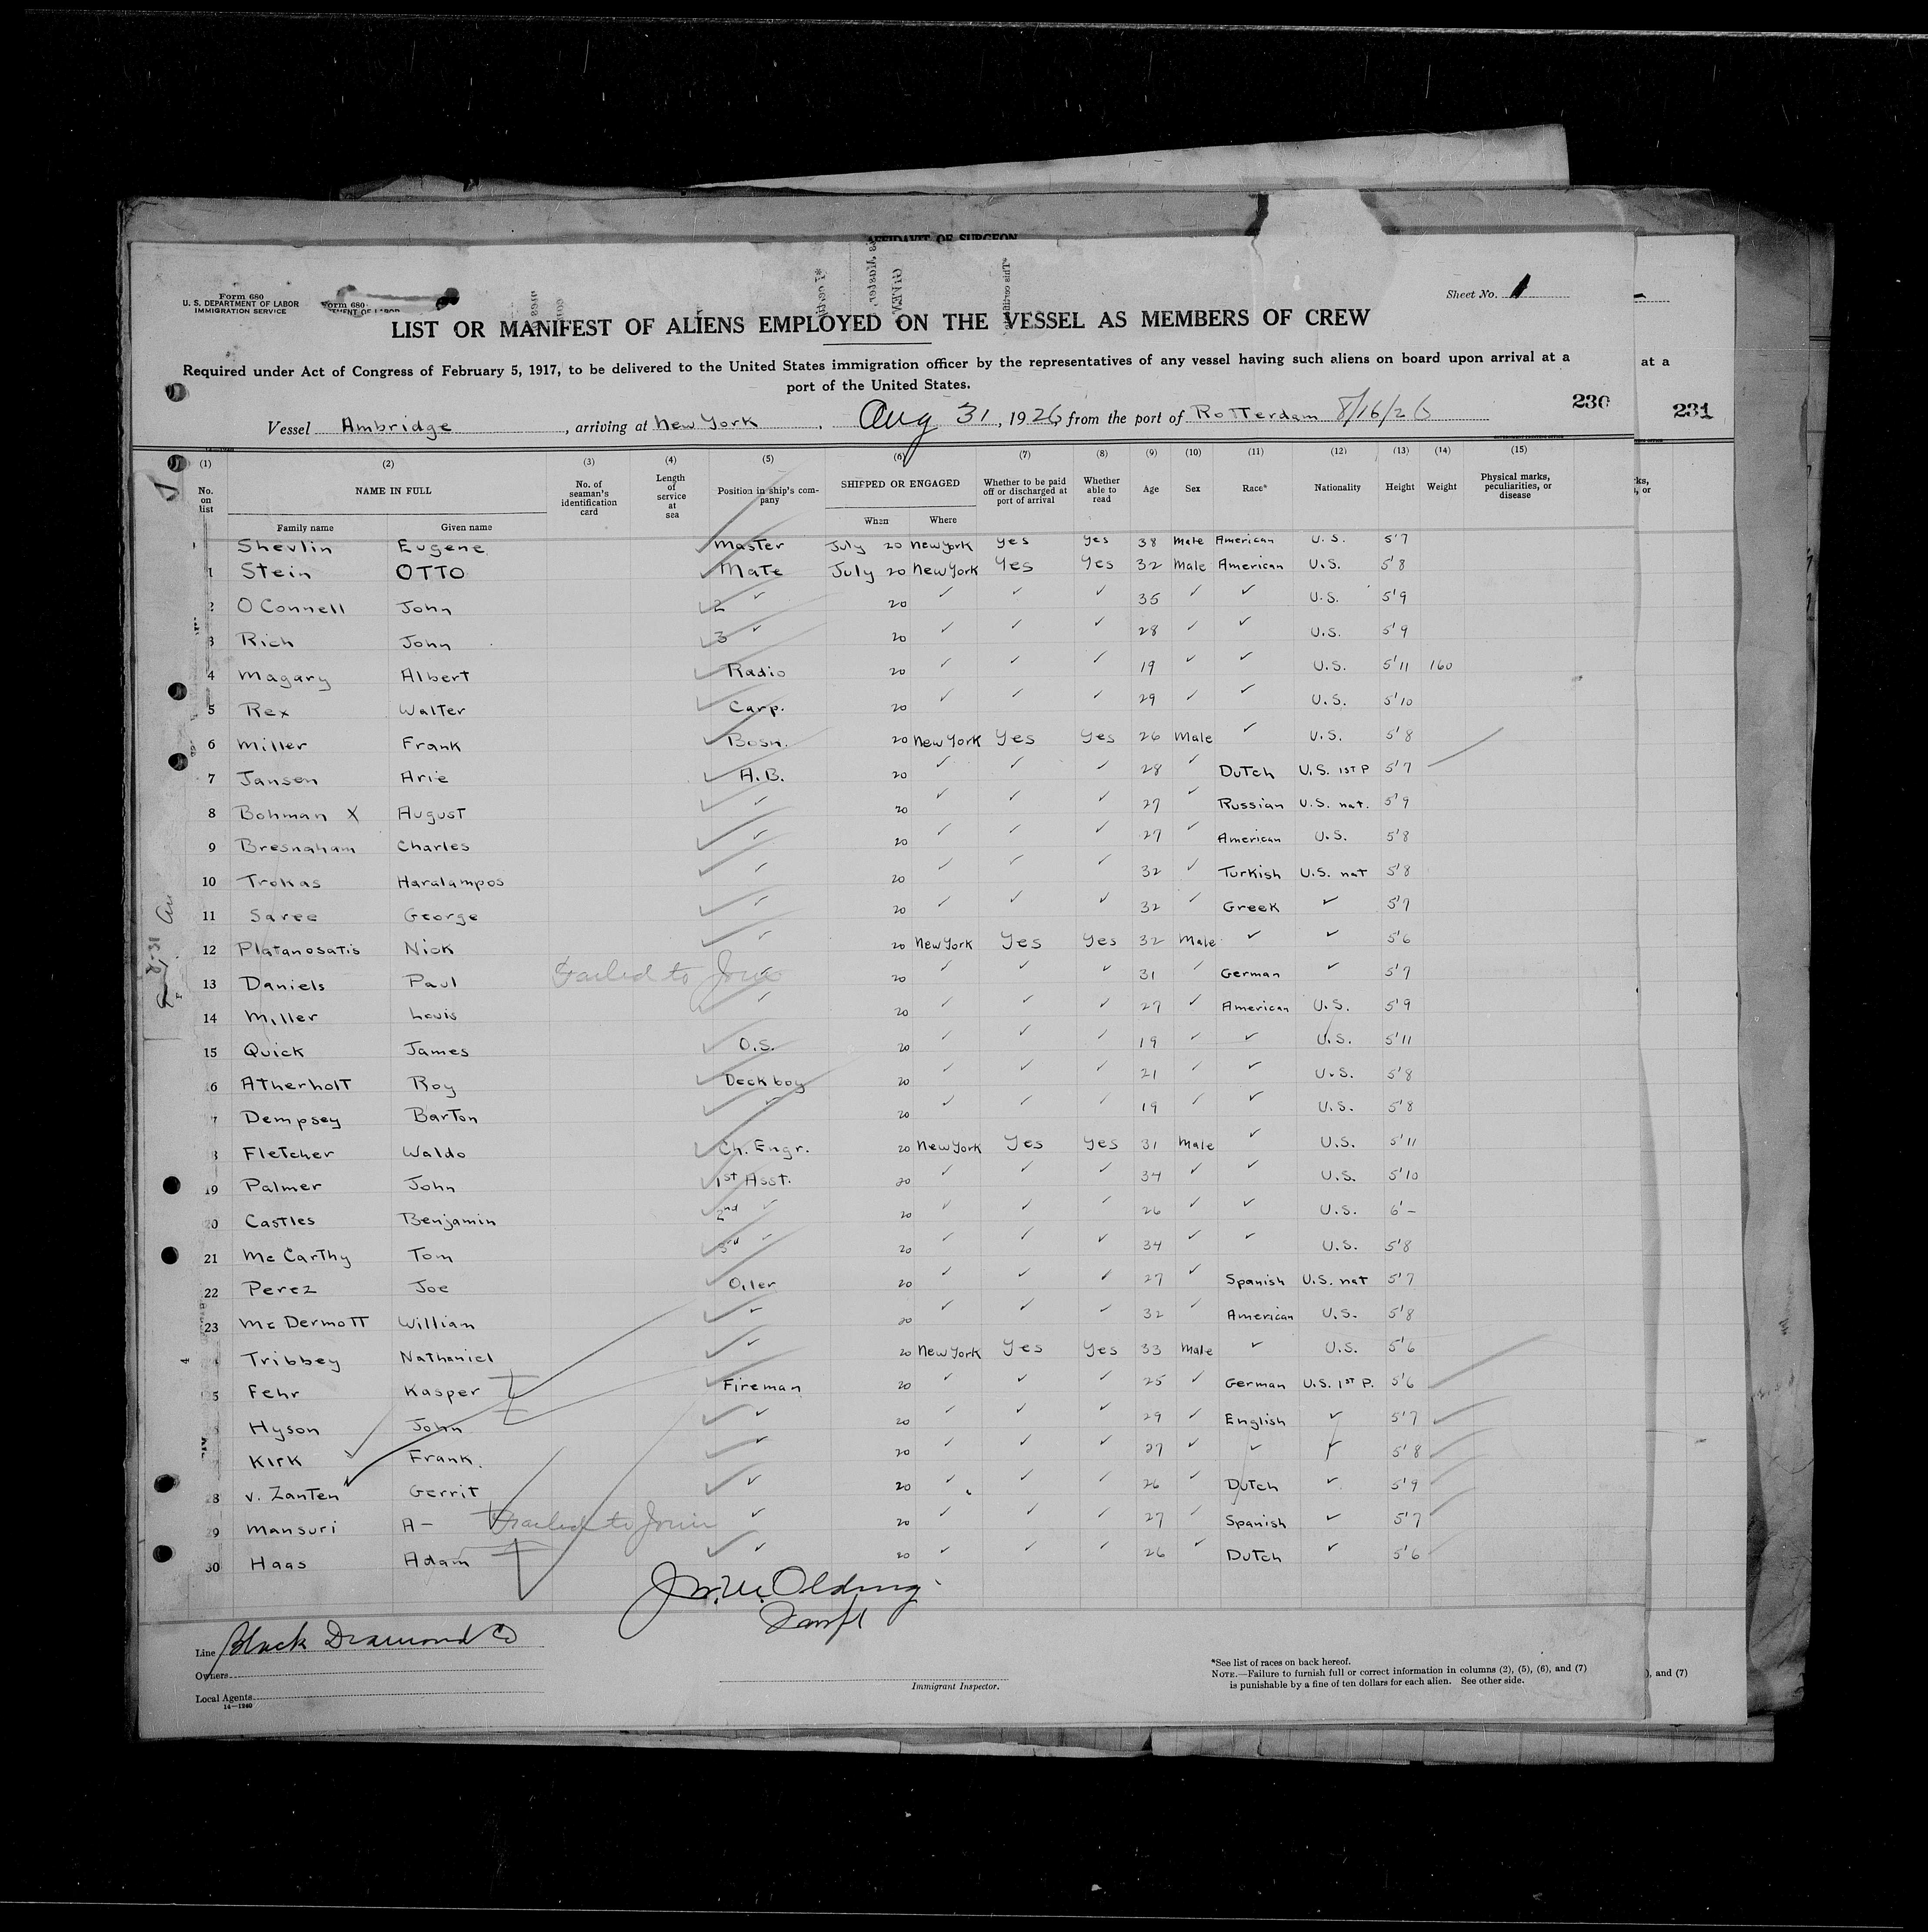 AFFIDAVIT OF SURGEON
Form 680
U. S. DEPARTMENT OF LABOR
IMMIGRATION SERVICE
Form 680
Sheet No. 1
LIST OR MANIFEST OF ALIENS EMPLOYED ON THE VESSEL AS MEMBERS OF CREW
Required under Act of Congress of February 5, 1917, to be delivered to the United States immigration officer by the representatives of any vessel having such aliens on board upon arrival at a
port of the United States.
at a
230
231
Vessel Ambridge, arriving at New York, Aug 31, 1926, from the port of Rotterdam 8/16/26
(1) (2) (3) (4) (5) (6) (7) (8) (9) (10) (11) (12) (13) (14) (15)
No. on list NAME IN FULL Family name Given name No. of seaman's identification card Length of service at sea Position in ship's company SHIPPED OR ENGAGED When Where Whether to be paid off or discharged at port of arrival Whether able to read Age Sex Race* Nationality Height Weight Physical marks, peculiarities, or disease
Shevlin Eugene Master July 20 New York yes yes 38 Male American U.S. 5'7
1 Stein OTTO Mate July 20 New York Yes Yes 32 Male American U.S. 5'8
2 O Connell John 2 ✓ 20 ✓ ✓ ✓ 35 ✓ ✓ U.S. 5'9
3 Rich John 3 ✓ 20 ✓ ✓ ✓ 28 ✓ ✓ U.S. 5'9
4 Magary Albert Radio 20 ✓ ✓ ✓ 19 ✓ ✓ U.S. 5'11 160
5 Rex Walter Carp. 20 ✓ ✓ ✓ 29 ✓ ✓ U.S. 5'10
6 Miller Frank Bosn. 20 New York Yes Yes 26 Male ✓ U.S. 5'8
7 Jansen Arie A.B. 20 ✓ ✓ ✓ 28 ✓ Dutch U.S. 1st P 5'7
8 Bohman X August ✓ 20 ✓ ✓ ✓ 27 ✓ Russian U.S. nat. 5'9
9 Bresnaham Charles ✓ 20 ✓ ✓ ✓ 27 ✓ American U.S. 5'8
10 Trokas Haralampos ✓ 20 ✓ ✓ ✓ 32 ✓ Turkish U.S. nat 5'8
11 Saree George ✓ 20 ✓ ✓ ✓ 32 ✓ Greek ✓ 5'7
12 Platanosatis Nick ✓ 20 New York Yes Yes 32 Male ✓ ✓ 5'6
13 Daniels Paul Failed to Join ✓ 20 ✓ ✓ ✓ 31 ✓ German ✓ 5'7
14 Miller Louis ✓ 20 ✓ ✓ ✓ 27 ✓ American U.S. 5'9
15 Quick James O.S. 20 ✓ ✓ ✓ 19 ✓ ✓ U.S. 5'11
16 Atherholt Roy Deck boy 20 ✓ ✓ ✓ 21 ✓ ✓ U.S. 5'8
17 Dempsey Barton ✓ 20 ✓ ✓ ✓ 19 ✓ ✓ U.S. 5'8
18 Fletcher Waldo Ch. Engr. 20 New York Yes Yes 31 Male ✓ U.S. 5'11
19 Palmer John 1st Asst. 20 ✓ ✓ ✓ 34 ✓ ✓ U.S. 5'10
20 Castles Benjamin 2nd ✓ 20 ✓ ✓ ✓ 26 ✓ ✓ U.S. 6'-
21 Mc Carthy Tom 3rd ✓ 20 ✓ ✓ ✓ 34 ✓ ✓ U.S. 5'8
22 Perez Joe Oiler 20 ✓ ✓ ✓ 27 ✓ Spanish U.S. nat 5'7
23 Mc Dermott William ✓ 20 ✓ ✓ ✓ 32 ✓ American U.S. 5'8
Tribbey Nathaniel ✓ 20 New York Yes Yes 33 Male ✓ U.S. 5'6
25 Fehr Kasper Fireman 20 ✓ ✓ ✓ 25 ✓ German U.S. 1st P. 5'6
Hyson John ✓ 20 ✓ ✓ ✓ 29 ✓ English ✓ 5'7
Kirk Frank. ✓ 20 ✓ ✓ ✓ 27 ✓ ✓ ✓ 5'8
28 v. Zanten Gerrit ✓ 20 ✓ ✓ ✓ 26 ✓ Dutch ✓ 5'9
29 Mansuri A- Failed to Join ✓ 20 ✓ ✓ ✓ 27 ✓ Spanish ✓ 5'7
30 Haas Adam ✓ 20 ✓ ✓ ✓ 26 ✓ Dutch ✓ 5'6
Line Black Diamond Co
Owners
Local Agents
14—1240
Immigrant Inspector.
*See list of races on back hereof.
NOTE.—Failure to furnish full or correct information in columns (2), (5), (6), and (7)
is punishable by a fine of ten dollars for each alien. See other side.
), and (7)